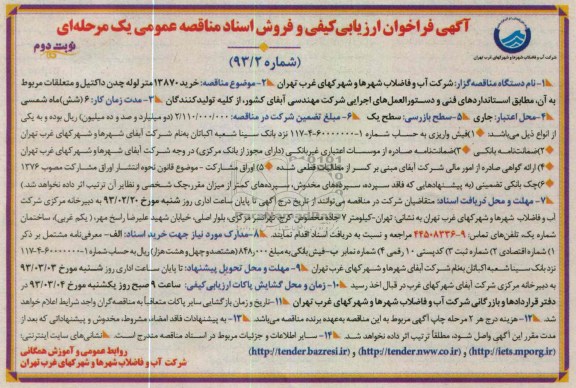 آگهی فراخوان ارزیابی کیفی و فروش اسناد مناقصه عمومی یک مرحله‌ای
نوبت دوم
(شماره ۹۳/۲)
شرکت آب و فاضلاب شهرها و شهرکهای غرب تهران
۱- نام دستگاه مناقصه‌گزار: شرکت آب و فاضلاب شهرها و شهرکهای غرب تهران ۲- موضوع مناقصه: خرید ۱۳۸۷۰ متر لوله چدن داکتیل و متعلقات مربوط
به آن، مطابق استانداردهای فنی و دستورالعمل‌های اجرایی شرکت مهندسی آبفای کشور، از کلیه تولیدکنندگان ۳- مدت زمان کار: ۶ (شش) ماه شمسی
۴- محل اعتبار: جاری ۵- سطح بازرسی: سطح یک ۶- مبلغ تضمین شرکت در مناقصه: ۲/۱۱۰/۰۰۰/۰۰۰ (دو میلیارد و صد و ده میلیون) ریال، که یکی
از انواع ذیل می‌باشند: ۱) فیش واریزی به حساب شماره ۱-۶۰۰۰۰۰۰۰-۴-۱۱۷ نزد بانک سینا شعبه اکباتان بنام شرکت آبفای شهرها و شهرکهای غرب تهران
۲) ضمانتنامه بانکی ۳) ضمانتنامه صادره از موسسات اعتباری غیربانکی (دارای مجوز از بانک مرکزی) در وجه شرکت آبفای شهرها و شهرکهای غرب تهران
۴) ارائه گواهی صادره از امور مالی شرکت آبفای مبنی بر کسر از مطالبات قطعی شده ۵) اوراق مشارکت - موضوع قانون نحوه انتشار اوراق مشارکت مصوب ۱۳۷۶
۶) چک بانکی تضمینی (به پیشنهادهایی که فاقد سپرده، سپرده‌های مخدوش، سپرده‌های کمتر از میزان مقرر، چک شخصی و نظایر آن ترتیب اثر داده نخواهد شد.)
۷- مهلت و محل دریافت اسناد: متقاضیان شرکت در مناقصه می‌توانند از تاریخ درج آگهی تا پایان ساعت اداری روز شنبه مورخ ۹۳/۰۲/۲۰ به دبیرخانه مرکزی شرکت
آب و فاضلاب شهرها و شهرکهای غرب تهران به نشانی: تهران- کیلومتر ۷ جاده مخصوص کرج، چهارباغ مرکزی، بلوار اصلی، خیابان شهید علیرضا راسخ مهر، (یکم غربی)، ساختمان
شماره یک، تلفن‌های تماس: ۹-۴۴۵۰۸۳۳۶ مراجعه و نسبت به دریافت اسناد اقدام نمایند. ۸- مدارک مورد نیاز جهت خرید اسناد: الف- معرفی‌نامه مشتمل بر ذکر
۱) شماره اقتصادی ۲) شماره ثبت ۳) کدپستی ۱۰ رقمی ۴) شماره نمابر ب- فیش بانکی به مبلغ ۸۴۸,۰۰۰ (هشتصد و چهل و هشت هزار) ریال به حساب شماره ۱-۶۰۰۰۰۰۰۰-۴-۱۱۷
نزد بانک سینا شعبه اکباتان بنام شرکت آبفای شهرها و شهرکهای غرب تهران ۹- مهلت و محل تحویل پیشنهاد: تا پایان ساعت اداری روز شنبه مورخ ۹۳/۰۳/۰۳
به دبیرخانه مرکزی شرکت آبفای شهرها و شهرکهای غرب در قبال اخذ رسید ۱۰- زمان و محل گشایش پاکات ارزیابی کیفی: ساعت ۹ صبح روز یکشنبه مورخ ۹۳/۰۳/۰۴ در
دفتر قراردادها و بازرگانی شرکت آب و فاضلاب شهرها و شهرکهای غرب تهران ۱۱- تاریخ و زمان بازگشایی سایر پاکات متعاقباً به مناقصه‌گران واجد شرایط اعلام خواهد
شد. ۱۲- هزینه درج هر ۲ مرحله چاپ آگهی مربوط به این مناقصه به‌عهده برنده مناقصه می‌باشد. ۱۳- به پیشنهادات فاقد امضاء، مشروط، مخدوش و پیشنهاداتی که بعد از
مدت مقرر این آگهی واصل شود، مطلقاً ترتیب اثر داده نخواهد شد. ۱۴- سایر اطلاعات و جزئیات مربوط در اسناد مناقصه مندرج است. ۱۵- نشانی‌های سایت اینترنتی:
(http://iets.mporg.ir) و (http://tender.nww.co.ir) و (http://tender.bazresi.ir)
روابط عمومی و آموزش همگانی
شرکت آب و فاضلاب شهرها و شهرکهای غرب تهران